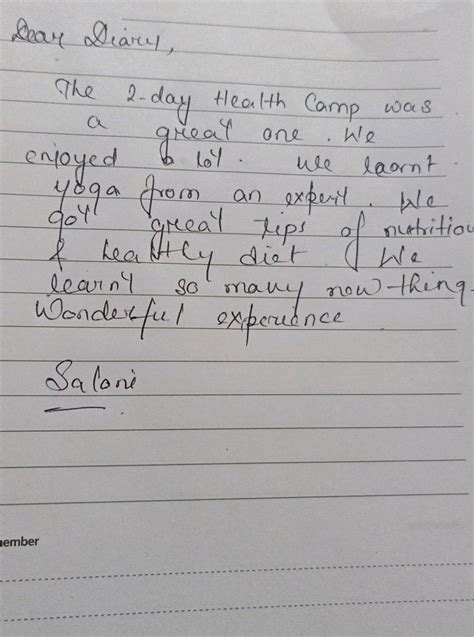 Dear Diary,
The 2-day Health Camp was
a great one. We
enjoyed a lot. We learnt
yoga from an expert. We
got great tips of nutrition
& healthy diet. We
learnt so many new thing
Wonderful experience
Saloni
member